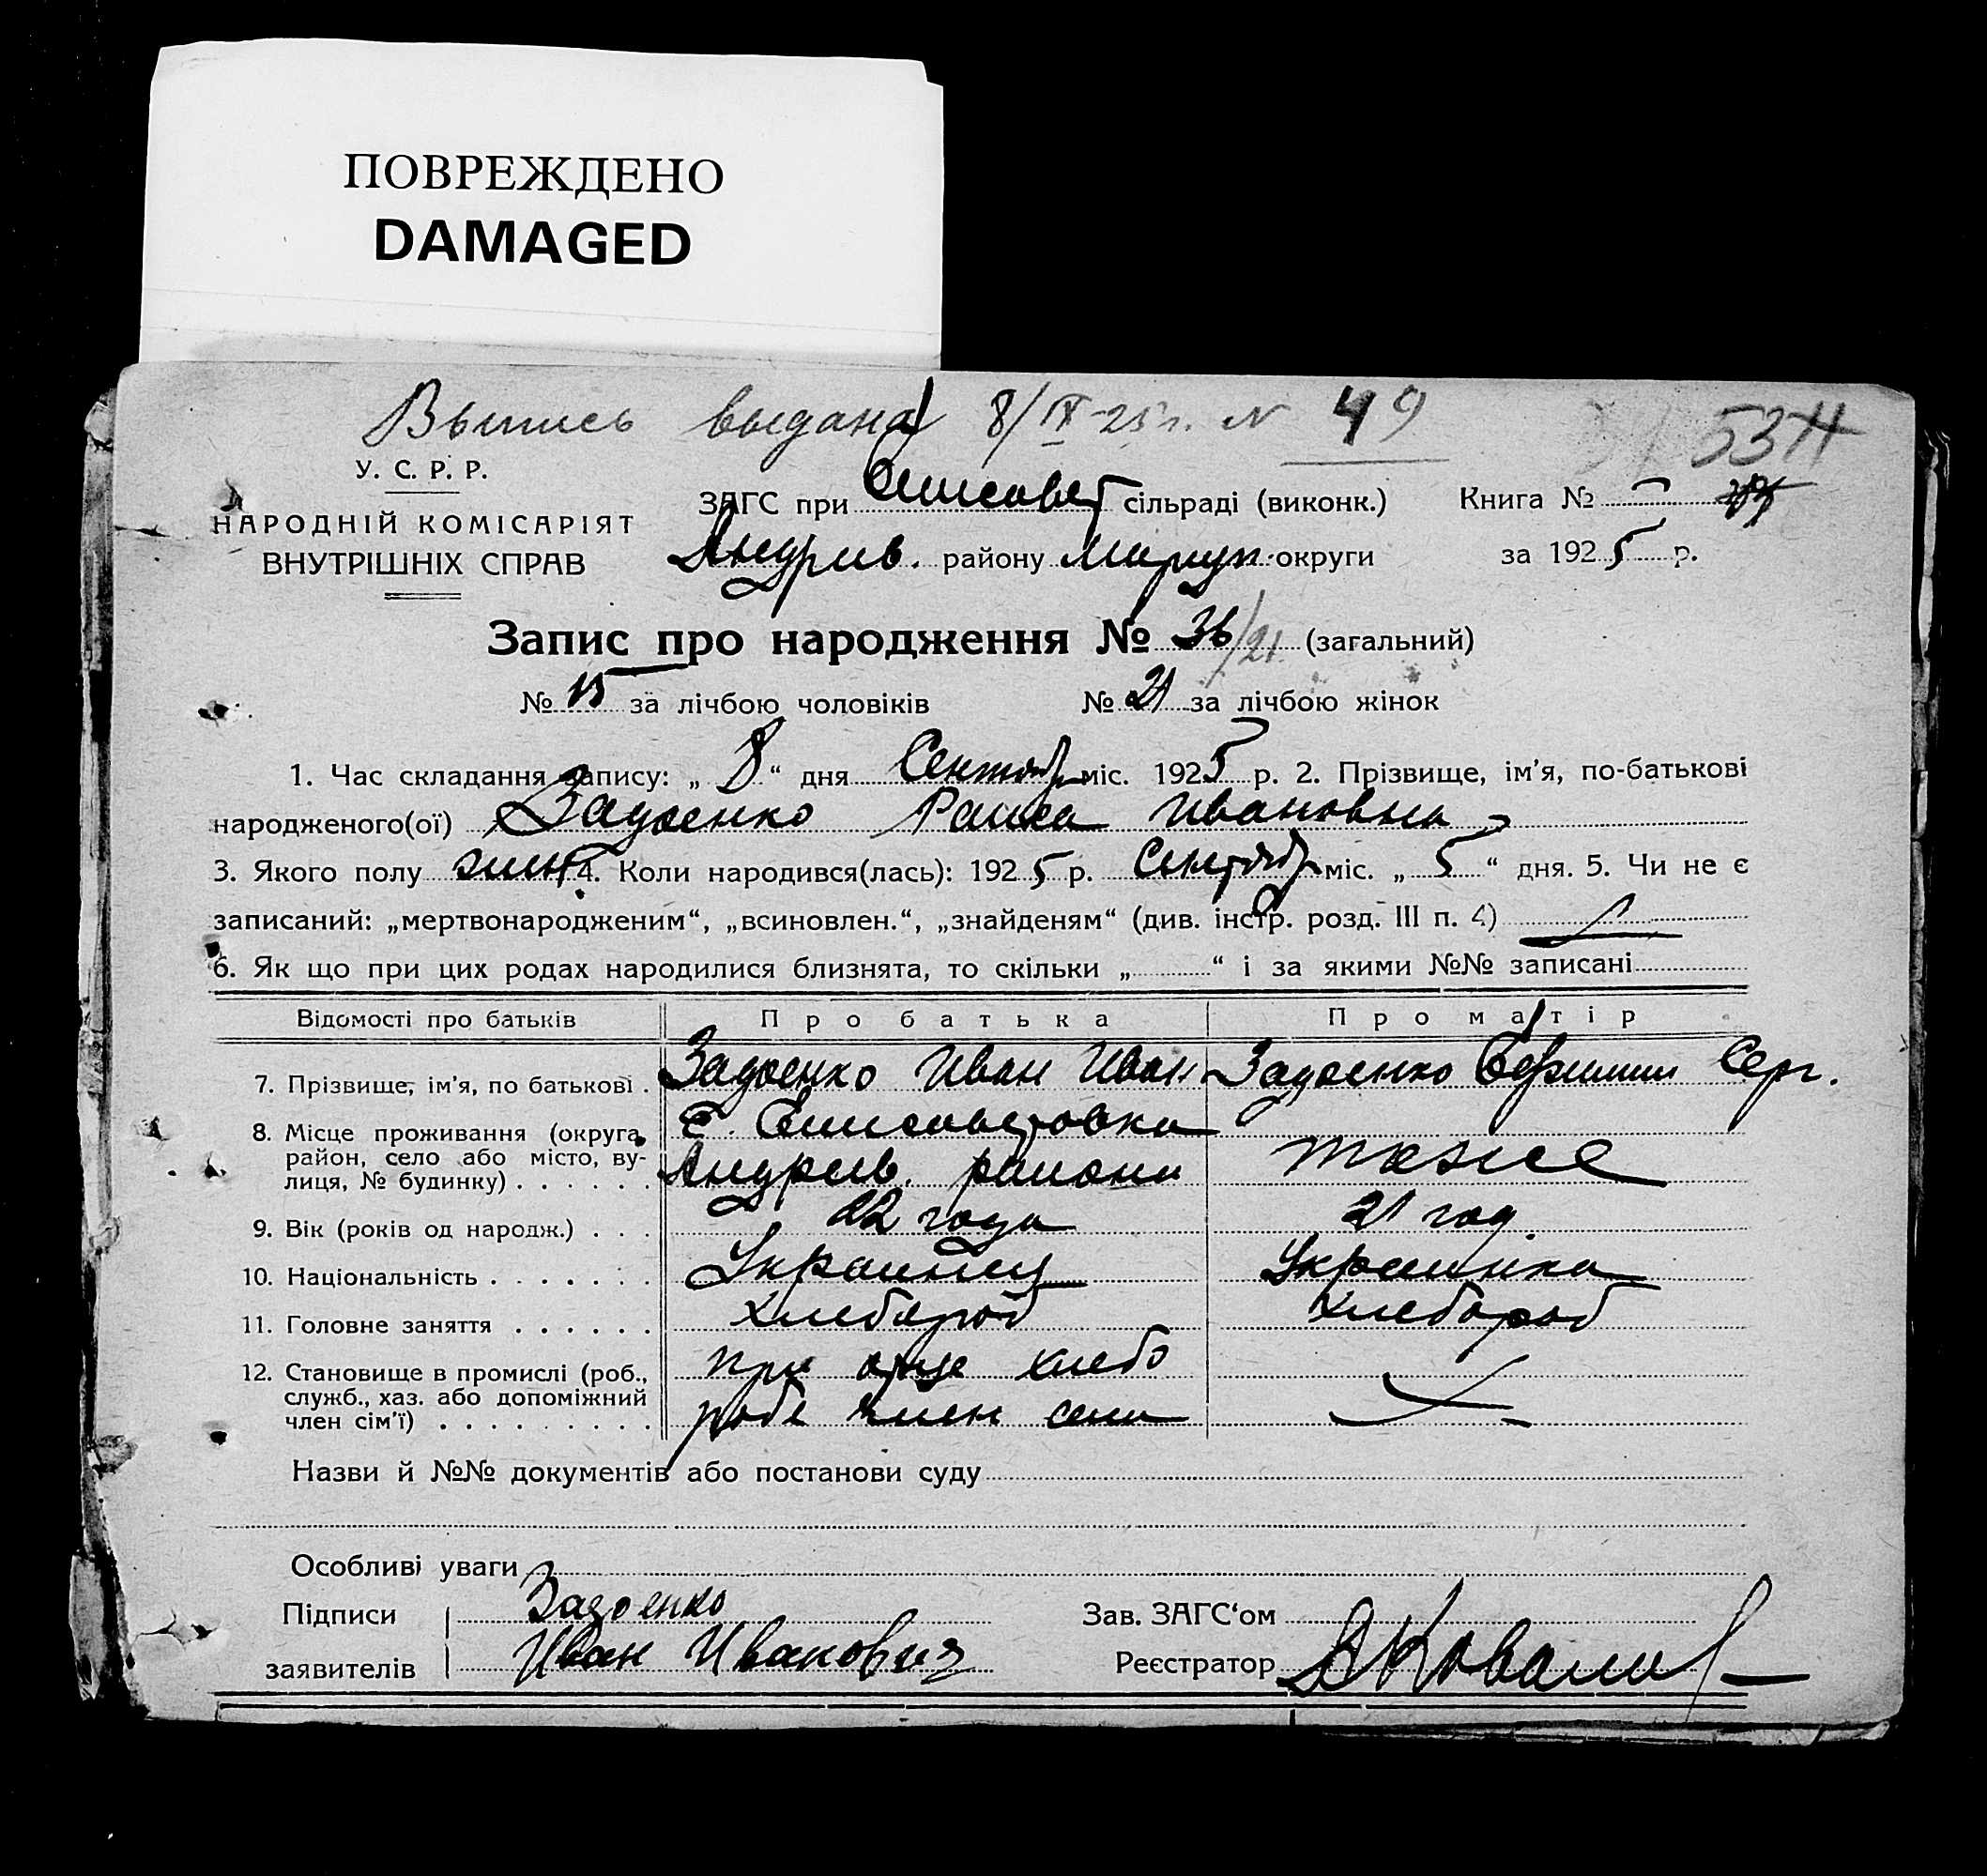 ПОВРЕЖДЕНО
DAMAGED
Выпись выдана 8/IX-25 г. N 49
У. С. Р. Р.
НАРОДНІЙ КОМІСАРІЯТ
ВНУТРІШНІХ СПРАВ
ЗАГС при Елисавет сільраді (виконк.) Книга №
Андрив. району Мариуп. округи за 1925 р.
Запис про народження № 36/21 (загальний)
№ 15 за лічбою чоловіків № 21 за лічбою жінок
1. Час складання запису: „ 8 “ дня Сентябр міс. 1925 р. 2. Прізвище, ім’я, по-батькові
народженого(ої) Задоенко Раиса Ивановна
3. Якого полу жен. 4. Коли народився(лась): 1925 р. Сентябр міс. „ 5 “ дня. 5. Чи не є
записаний: „мертвонародженим“, „всиновлен.“, „знайденям“ (див. інстр. розд. III п. 4)
6. Як що при цих родах народилися близнята, то скільки „ “ і за якими №№ записані
Відомості про батьків Про батька Про матір
7. Прізвище, ім’я, по батькові . Задоенко Иван Иван Задоенко Серг.
8. Місце проживання (округа, район, село або місто, ву-
лиця, № будинку) . . . . . . С. Елисаветовка
Андреев. района тоже
9. Вік (років од народж.) . . . 22 года 21 год
10. Національність . . . . . . . Украинец Украинка
11. Головне заняття . . . . . . Хлебороб Хлебороб
12. Становище в промислі (роб.,
служб., хаз. або допоміжний
член сім’ї) . . . . . . . . . при отце хлебо
робе член семи
Назви й №№ документів або постанови суду
Особливі уваги
Підписи Задоенко Зав. ЗАГС‘ом
заявителів Иван Иванович Реєстратор